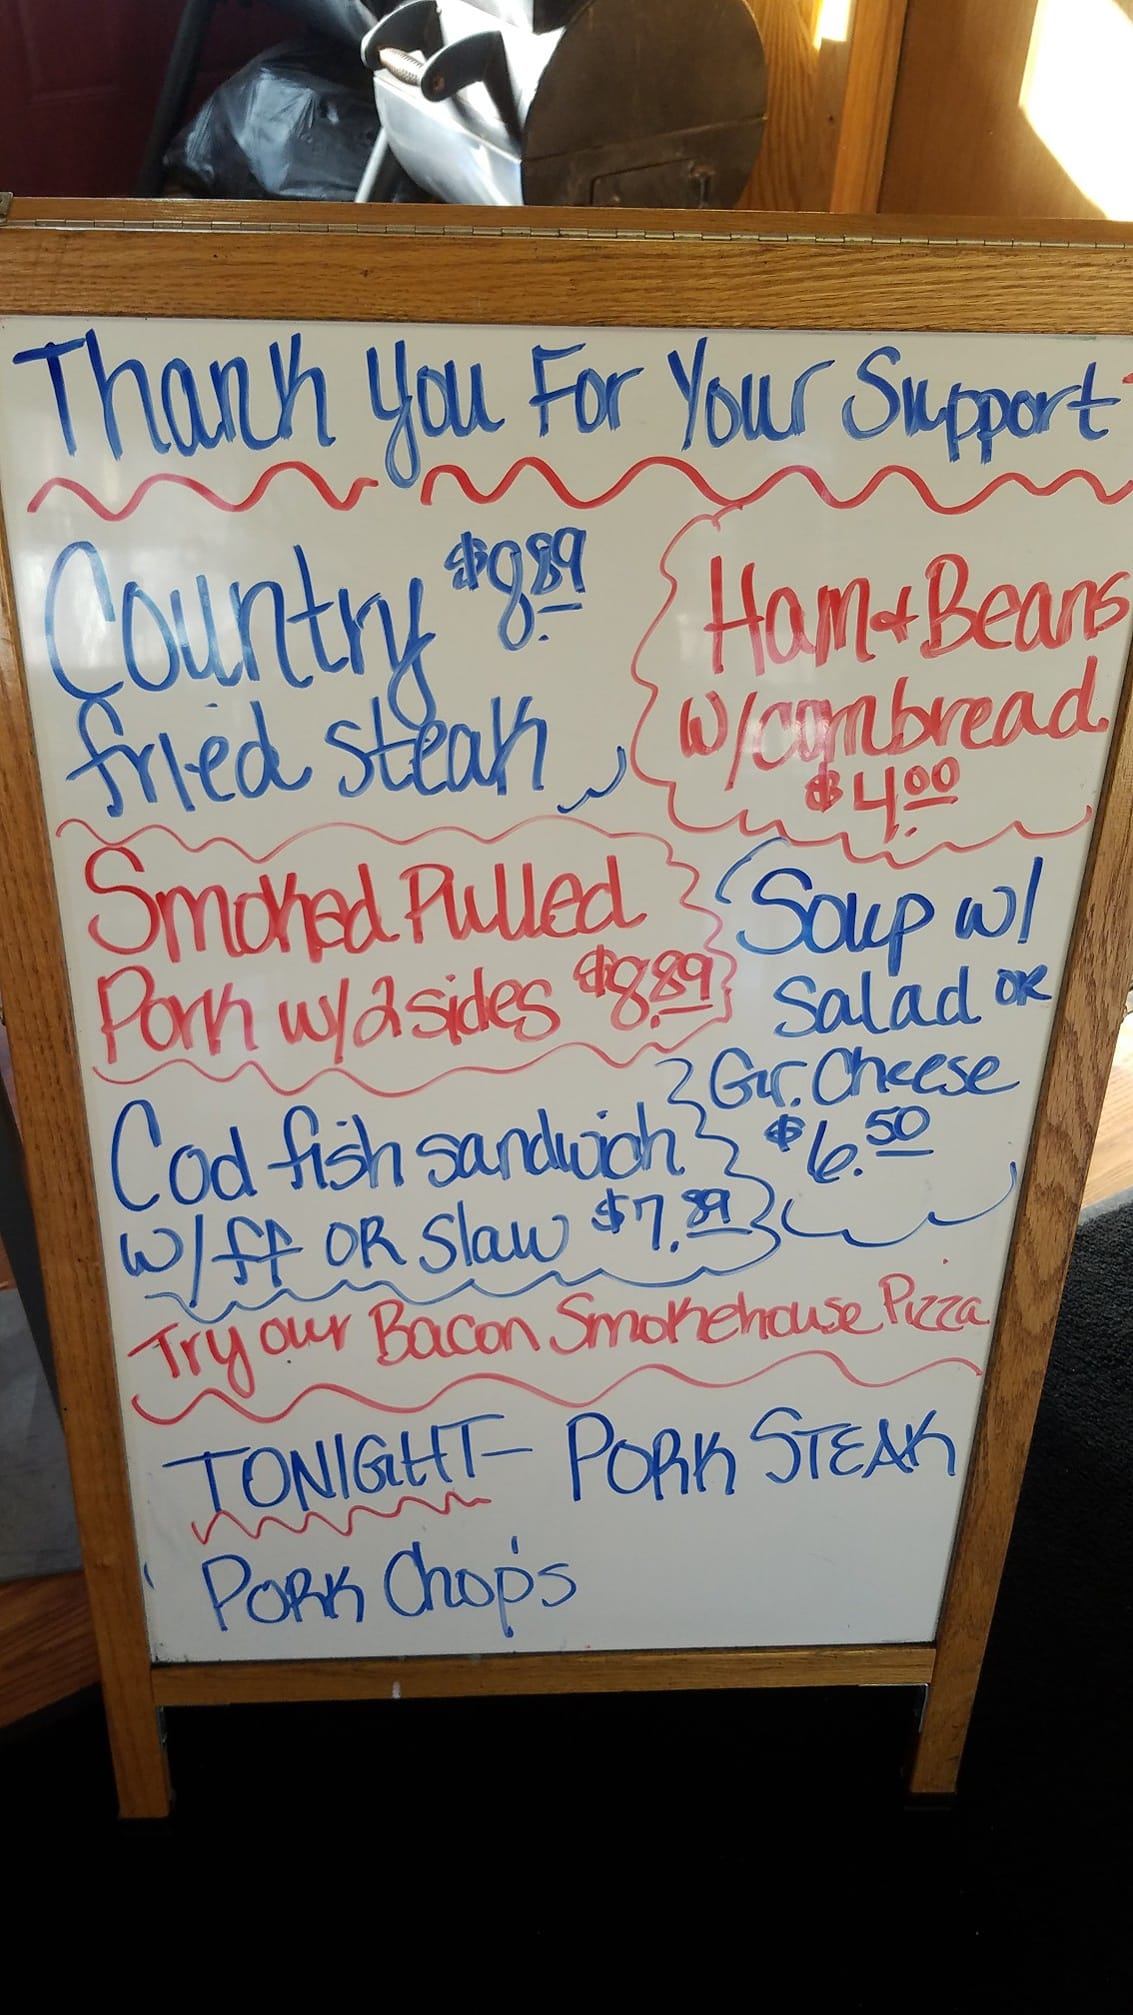 Thank You For Your Support
Country $8.89
fried steak
Ham & Beans
w/cornbread
$4.00
Smoked Pulled
Pork w/2 sides $8.89
Soup w/
Salad OR
Gr. Cheese
$6.50
Cod fish sandwich
w/ff OR Slaw $7.89
Try our Bacon Smokehouse Pizza
TONIGHT- PORK STEAK
PORK Chop's